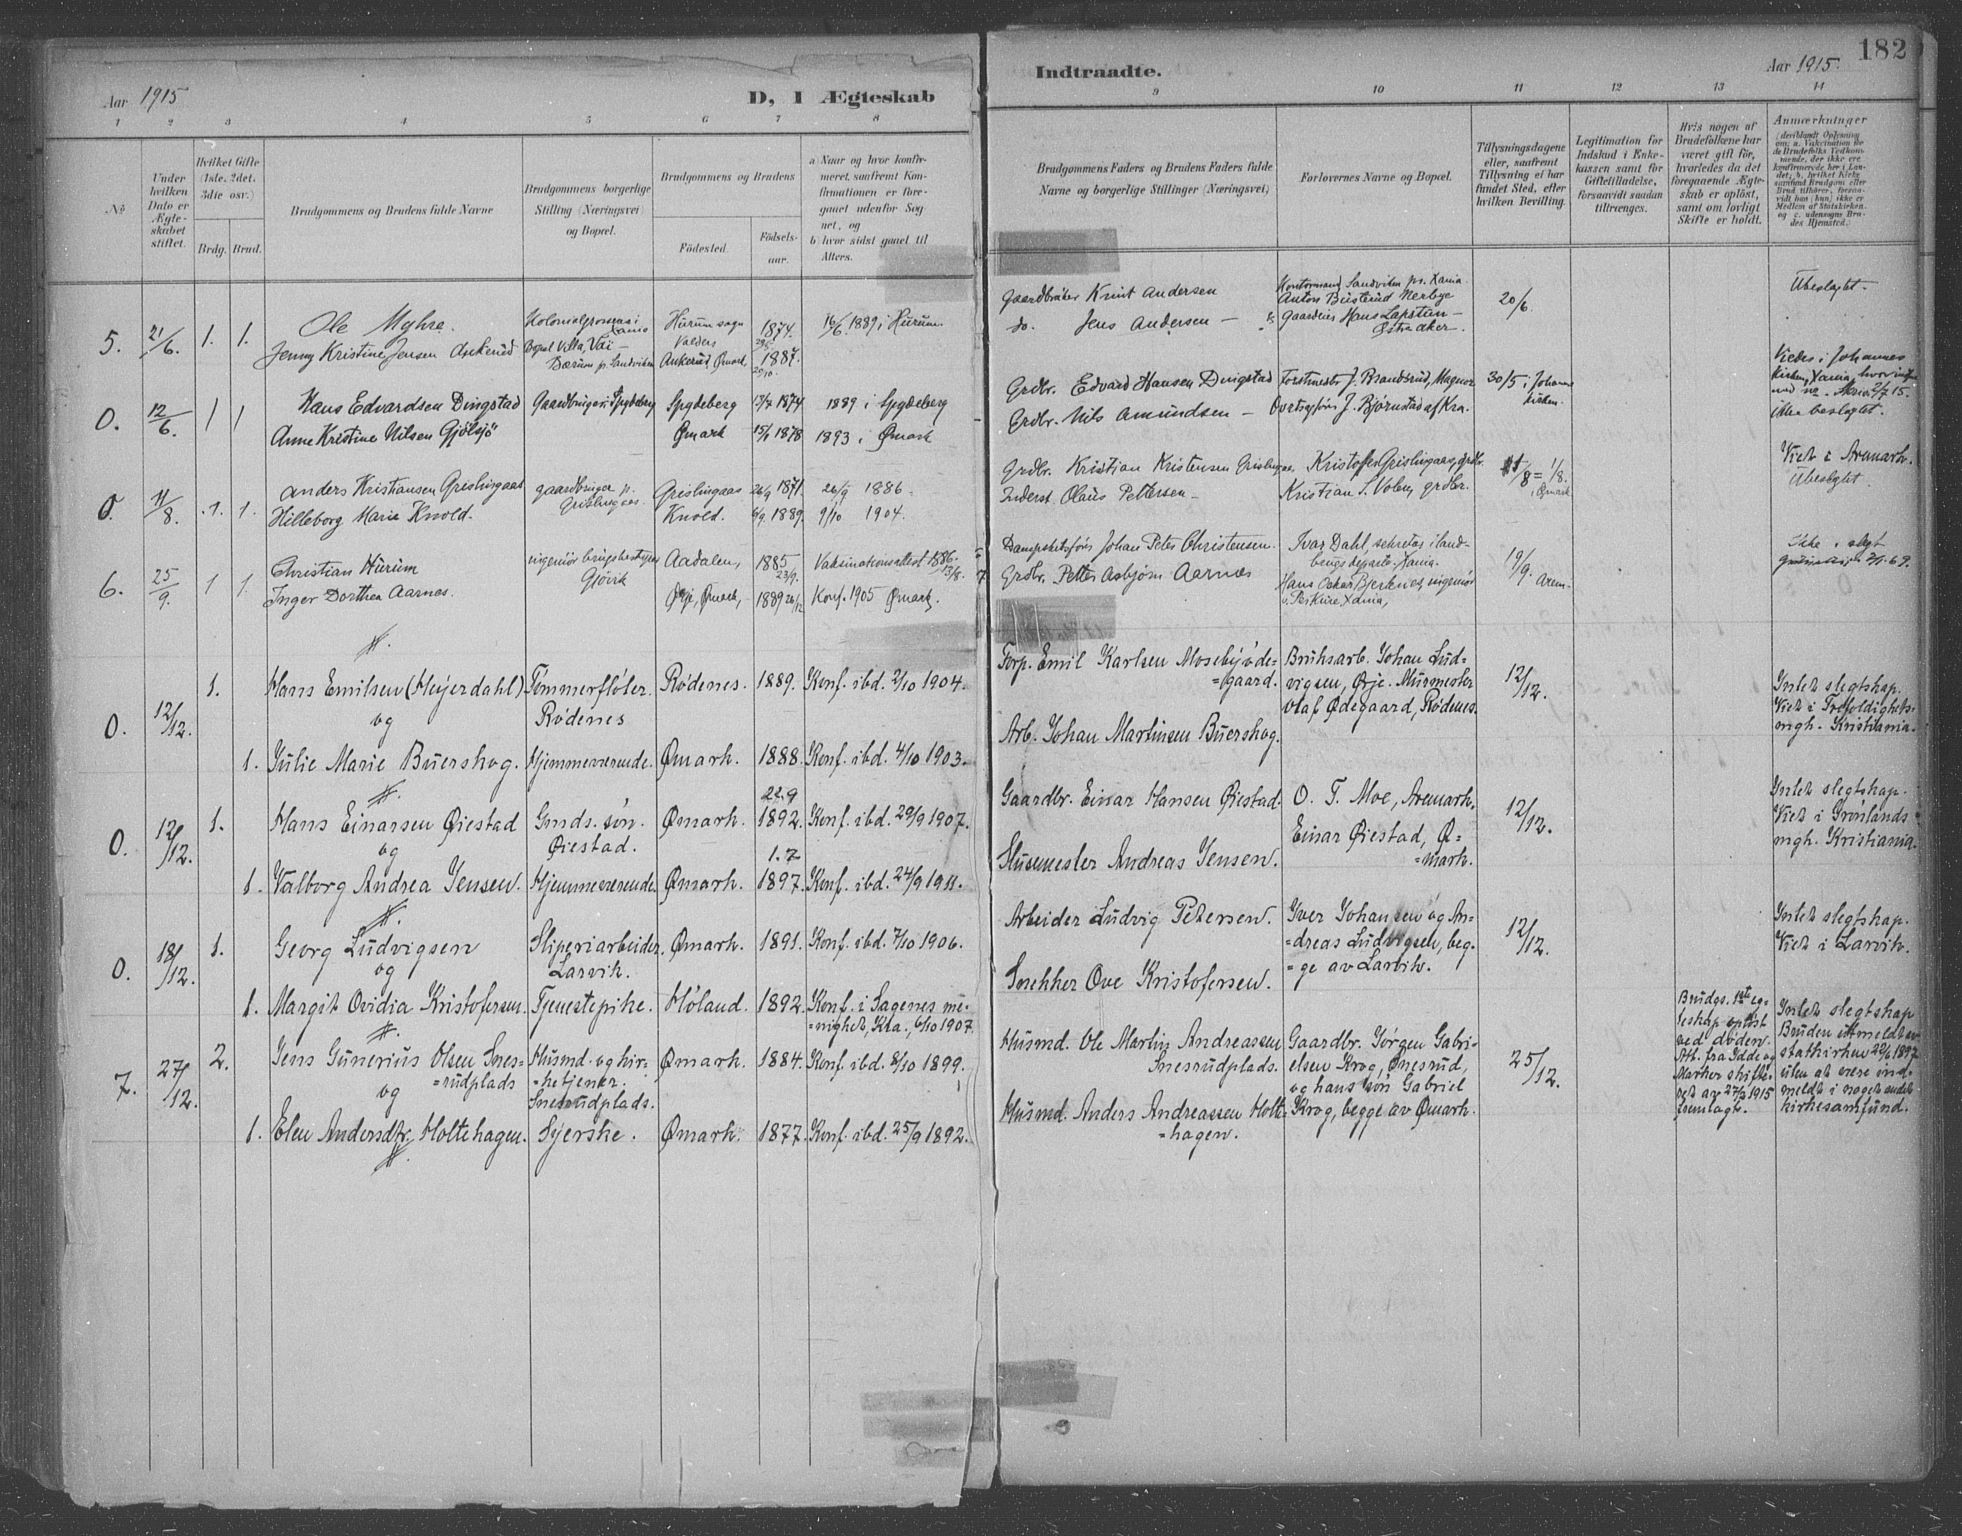 Aar 1915
D, I Ægteskab
1 2 3 4 5 6 7 8
No
Under hvilken Dato er Ægteskabet stiftet.
Hvilket Gifte (1ste, 2det, 3die osv.)
Brdg. Brud.
Brudgommens og Brudens fulde Navne
Brudgommens borgerlige Stilling (Næringsvei) og Bopæl.
Brudgommens og Brudens
Fødested. Fødselsaar.
a Naar og hvor konfirmeret, samt fremt Konfirmationen er foregaaet udenfor Sognet, og
b hvor sidst gaaet til Alters.
5. 21/6. 1. 1.
Ole Myhre.
Jenny Kristine Jensen Ankerud
Bopæl Villa, Bærum p. Sandviken
Hurum sogn Valders 1874. 16/6. 1889 i Hurum
Ankerud, Ømark, 1887.
0. 12/6. 1 1
Hans Edvardsen Dingstad Gaardbruger i Spydeberg Spydeberg 1874 1889 i Spydeberg
Anne Kristine Nilsen Gjølsjø Ømark 1878 1893 i Ømark
0. 11/8. 1. 1.
Anders Kristiansen Grislingaas gaardbruger p. Grislingaas Grislingaas 26/9 1871. 26/9 1886.
Hilleborg Marie Knold. Knold. 6/9. 1889. 9/10 1904.
6. 25/9. 1 1.
Christian Hurum ingeniør brugsbestyrer Gjøvik Aadalen, 1885 23/9. Vaksinationsattest 1886 13/8.
Inger Dorthea Aarnes. Ørje, Ømark, 1889 Konf. 1905 Ømark.
0. 12/12. 1.
Hans Emilsen (Heyerdahl) Tømmerfløter. Rødenes. 1889. Konf. ibd. 2/10 1904.
og Rødenes
1. Julie Marie Buershog. Hjemmeværende. Ømark. 1888. Konf. ibd. 4/10 1903.
0. 12/12. 1.
22.9
Hans Einarsen Øiestad Gmds. søn. Ømark. 1892. Konf. ibd. 29/9 1907.
og Øiestad.
1.7
1. Valborg Andrea Jensen. Hjemmeværende. Ømark. 1897. Konf. ibd. 24/9 1911.
0. 18/12. 1.
Georg Ludvigsen Sliperiarbeider. Ømark. 1891. Konf. ibd. 7/10 1906.
og Larvik.
1. Margit Ovidia Kristofersen. Tjenestepike. Høland. 1892. Konf. i Sagenes me-
=nighet, Kra., 6/10 1907.
7. 27/12. 2.
Jens Gunerius Olsen Snes- Husmd. og kir- Ømark. 1884. Konf. ibd. 8/10 1899.
=rudplads =ketjener.
og Snesrudplads.
1. Elen Andersdtr. Holtehagen. Syerske. Ømark. 1877. Konf. ibd. 25/9 1892.
182
Indtraadte.
Aar 1915.
9 10 11 12 13 14
Brudgommens Faders og Brudens Faders fulde Navne og borgerlige Stillinger (Næringsvei)
Forlovernes Navne og Bopæl.
Tillysningsdagene eller, saafremt Tillysning ei har fundet Sted, efter hvilken Bevilling.
Legitimation for Indskud i Enkekassen samt for Giftetilladelse, forsaavidt saadan tiltrænges.
Hvis nogen af Brudefolkene har været gift før, hvorledes da det foregaaende Ægteskab er opløst, samt om lovligt Skifte er holdt.
Anmærkninger
Gaardbruker Knut Andersen
do. Jens Andersen
Anton Busterud Nerbye
20/6.
Ubeslegtet.
Grdbr. Edvard Hansen Dingstad Forstmester J. Brandsrud, Magnor 30/5 i Johans kirken.
Grdbr. Nils Amundsen
Ovrtsgførr J. Bjørnstad af Kra.
Viedes i Johannes Kirken, Xania,
ikke beslegtet.
Grdbr. Kristian Kristensen Grislingaas. Kristofer Grislingaas, grdbr.
Inderst Olaus Pettersen
Kristian S. Volen, grdbr.
Viet i Aremark.
Ubeslegtet.
Dampskibsfører Johan Peter Christensen. Ivar Dahl, sekretær i land-
Grdbr. Petter Asbjørn Aarnes
Hans Oskar Bjerknes, ingeniør
19/9. Arem
Ikke i slegt
Torp. Emil Karlsen Mosebyøde-
=gaard.
Arb. Johan Martinsen Buershog.
Bruksarb. Johan Lud-
vigsen, Ørje. Murmester
Olaf Ødegaard, Rødenes.
12/12.
Intet slegtskap.
Viet i Trefoldighets-
mgh. Kristiania.
Gaardbr. Einar Hansen Øiestad.
Husmester Andreas Jensen.
O. T. Moe, Aremark.
Einar Øiestad, Ø-
=mark.
12/12.
Intet slegtskap.
Viet i Grønlands
mgh. Kristiania.
Arbeider Ludvig Petersen.
Snekker Ove Kristofersen.
Iver Johansen og An-
=dreas Ludvigsen, beg-
=ge av Larvik.
12/12.
Intet slegtskap.
Viet i Larvik.
Husmd. Ole Martin Andreassen
Snesrudplads.
Husmd. Anders Andreassen Holte-
=hagen.
Gaardbr. Jørgen Gabri-
elsen Krog, Ønesrud,
og hans søn Gabriel
Krog, begge av Ømark.
25/12.
Brudgs. 1ste eg-
teskap opløst
ved døden.
Att. fra Idde og
Marker skifte-
ret av 27/12 1915
fremlagt.
Intet slegtskap
Bruden utmeldt av
statskirken 29/6 1897
uten at være ind-
meldt i noget andet
kirkesamfund.